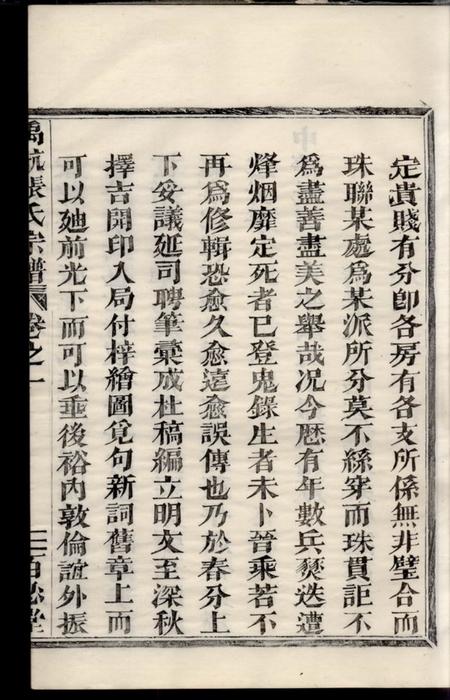 定貴賤有分卽各房有各支所係無非璧合而
珠聯某處爲某派所分莫不絲穿而珠貫詎不
爲盡善盡美之舉哉况今厯有年數兵燹迭遭
烽烟靡定死者已登鬼錄生者未卜晉乘若不
再爲修輯恐愈久愈遠愈誤傳也乃於春分上
下妥議延司聘筆彙成杜稿編立明文至深秋
擇吉開印入局付梓繪圖覓句新詞舊章上而
可以廸前光下而可以垂後裕內敦倫誼外振
禹杭張氏宗譜 卷之一 百忍堂